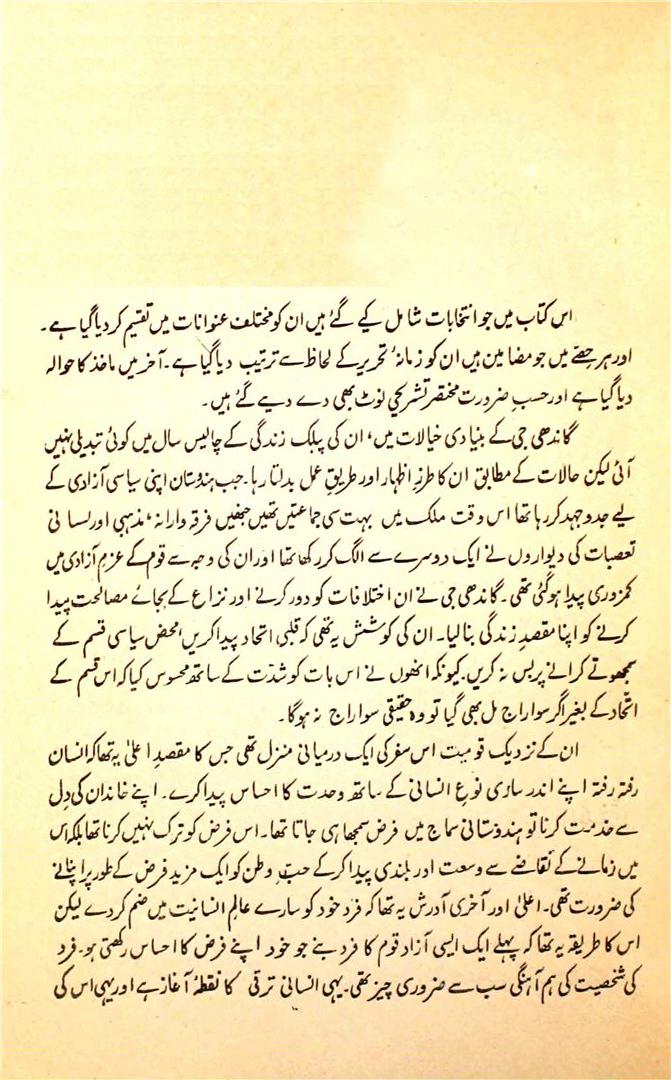 اس کتاب میں جو انتخابات شامل کیے گئے ہیں ان کو مختلف عنوانات میں تقسیم کر دیا گیا ہے۔
اور ہر حصّے میں جو مضامین ہیں ان کو زمانۂ تحریر کے لحاظ سے ترتیب دیا گیا ہے۔ آخر میں ماخذ کا حوالہ
دیا گیا ہے اور حسبِ ضرورت مختصر تشریحی نوٹ بھی دے دیے گئے ہیں۔
گاندھی جی کے بنیادی خیالات میں، ان کی پبلک زندگی کے چالیس سال میں کوئی تبدیلی نہیں
آئی لیکن حالات کے مطابق ان کا طرزِ اظہار اور طریقِ عمل بدلتا رہا۔ جب ہندوستان اپنی سیاسی آزادی کے
لیے جدوجہد کر رہا تھا اس وقت ملک میں بہت سی جماعتیں تھیں جنھیں فرقہ وارانہ، مذہبی اور لسانی
تعصبات کی دیواروں نے ایک دوسرے سے الگ کر رکھا تھا اور ان کی وجہ سے قوم کے عزمِ آزادی میں
کمزوری پیدا ہو گئی تھی۔ گاندھی جی نے ان اختلافات کو دور کرنے اور نزاع کے بجائے مصالحت پیدا
کرنے کو اپنا مقصدِ زندگی بنا لیا۔ ان کی کوشش یہ تھی کہ قلبی اتحاد پیدا کریں، محض سیاسی قسم کے
سمجھوتے کرانے پر بس نہ کریں۔ کیونکہ انھوں نے اس بات کو شدّت کے ساتھ محسوس کیا کہ اس قسم کے
اتّحاد کے بغیر اگر سواراج مل بھی گیا تو وہ حقیقی سواراج نہ ہوگا۔
ان کے نزدیک قومیت اس سفر کی ایک درمیانی منزل تھی جس کا مقصدِ اعلیٰ یہ تھا کہ انسان
رفتہ رفتہ اپنے اندر ساری نوعِ انسانی کے ساتھ وحدت کا احساس پیدا کرے۔ اپنے خاندان کی دل
سے خدمت کرنا تو ہندوستانی سماج میں فرض سمجھا ہی جاتا تھا۔ اس فرض کو ترک نہیں کرنا تھا بلکہ اس
میں زمانے کے تقاضے سے وسعت اور بلندی پیدا کر کے حبِّ وطن کو ایک مزید فرض کے طور پر اپنانے
کی ضرورت تھی۔ اعلیٰ اور آخری آدرش یہ تھا کہ فرد خود کو سارے عالمِ انسانیت میں ضم کر دے لیکن
اس کا طریقہ یہ تھا کہ پہلے ایک ایسی آزاد قوم کا فرد بنے جو خود اپنے فرض کا احساس رکھتی ہو۔ فرد
کی شخصیت کی ہم آہنگی سب سے ضروری چیز تھی۔ یہی انسانی ترقی کا نقطۂ آغاز ہے اور یہی اس کی